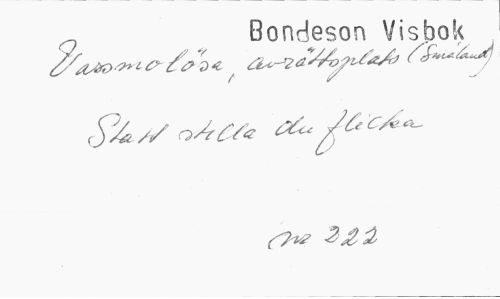 Bondeson Visbok
Vassmolösa, avrättsplats (Småland)
Statt stilla du flicka
nr 222